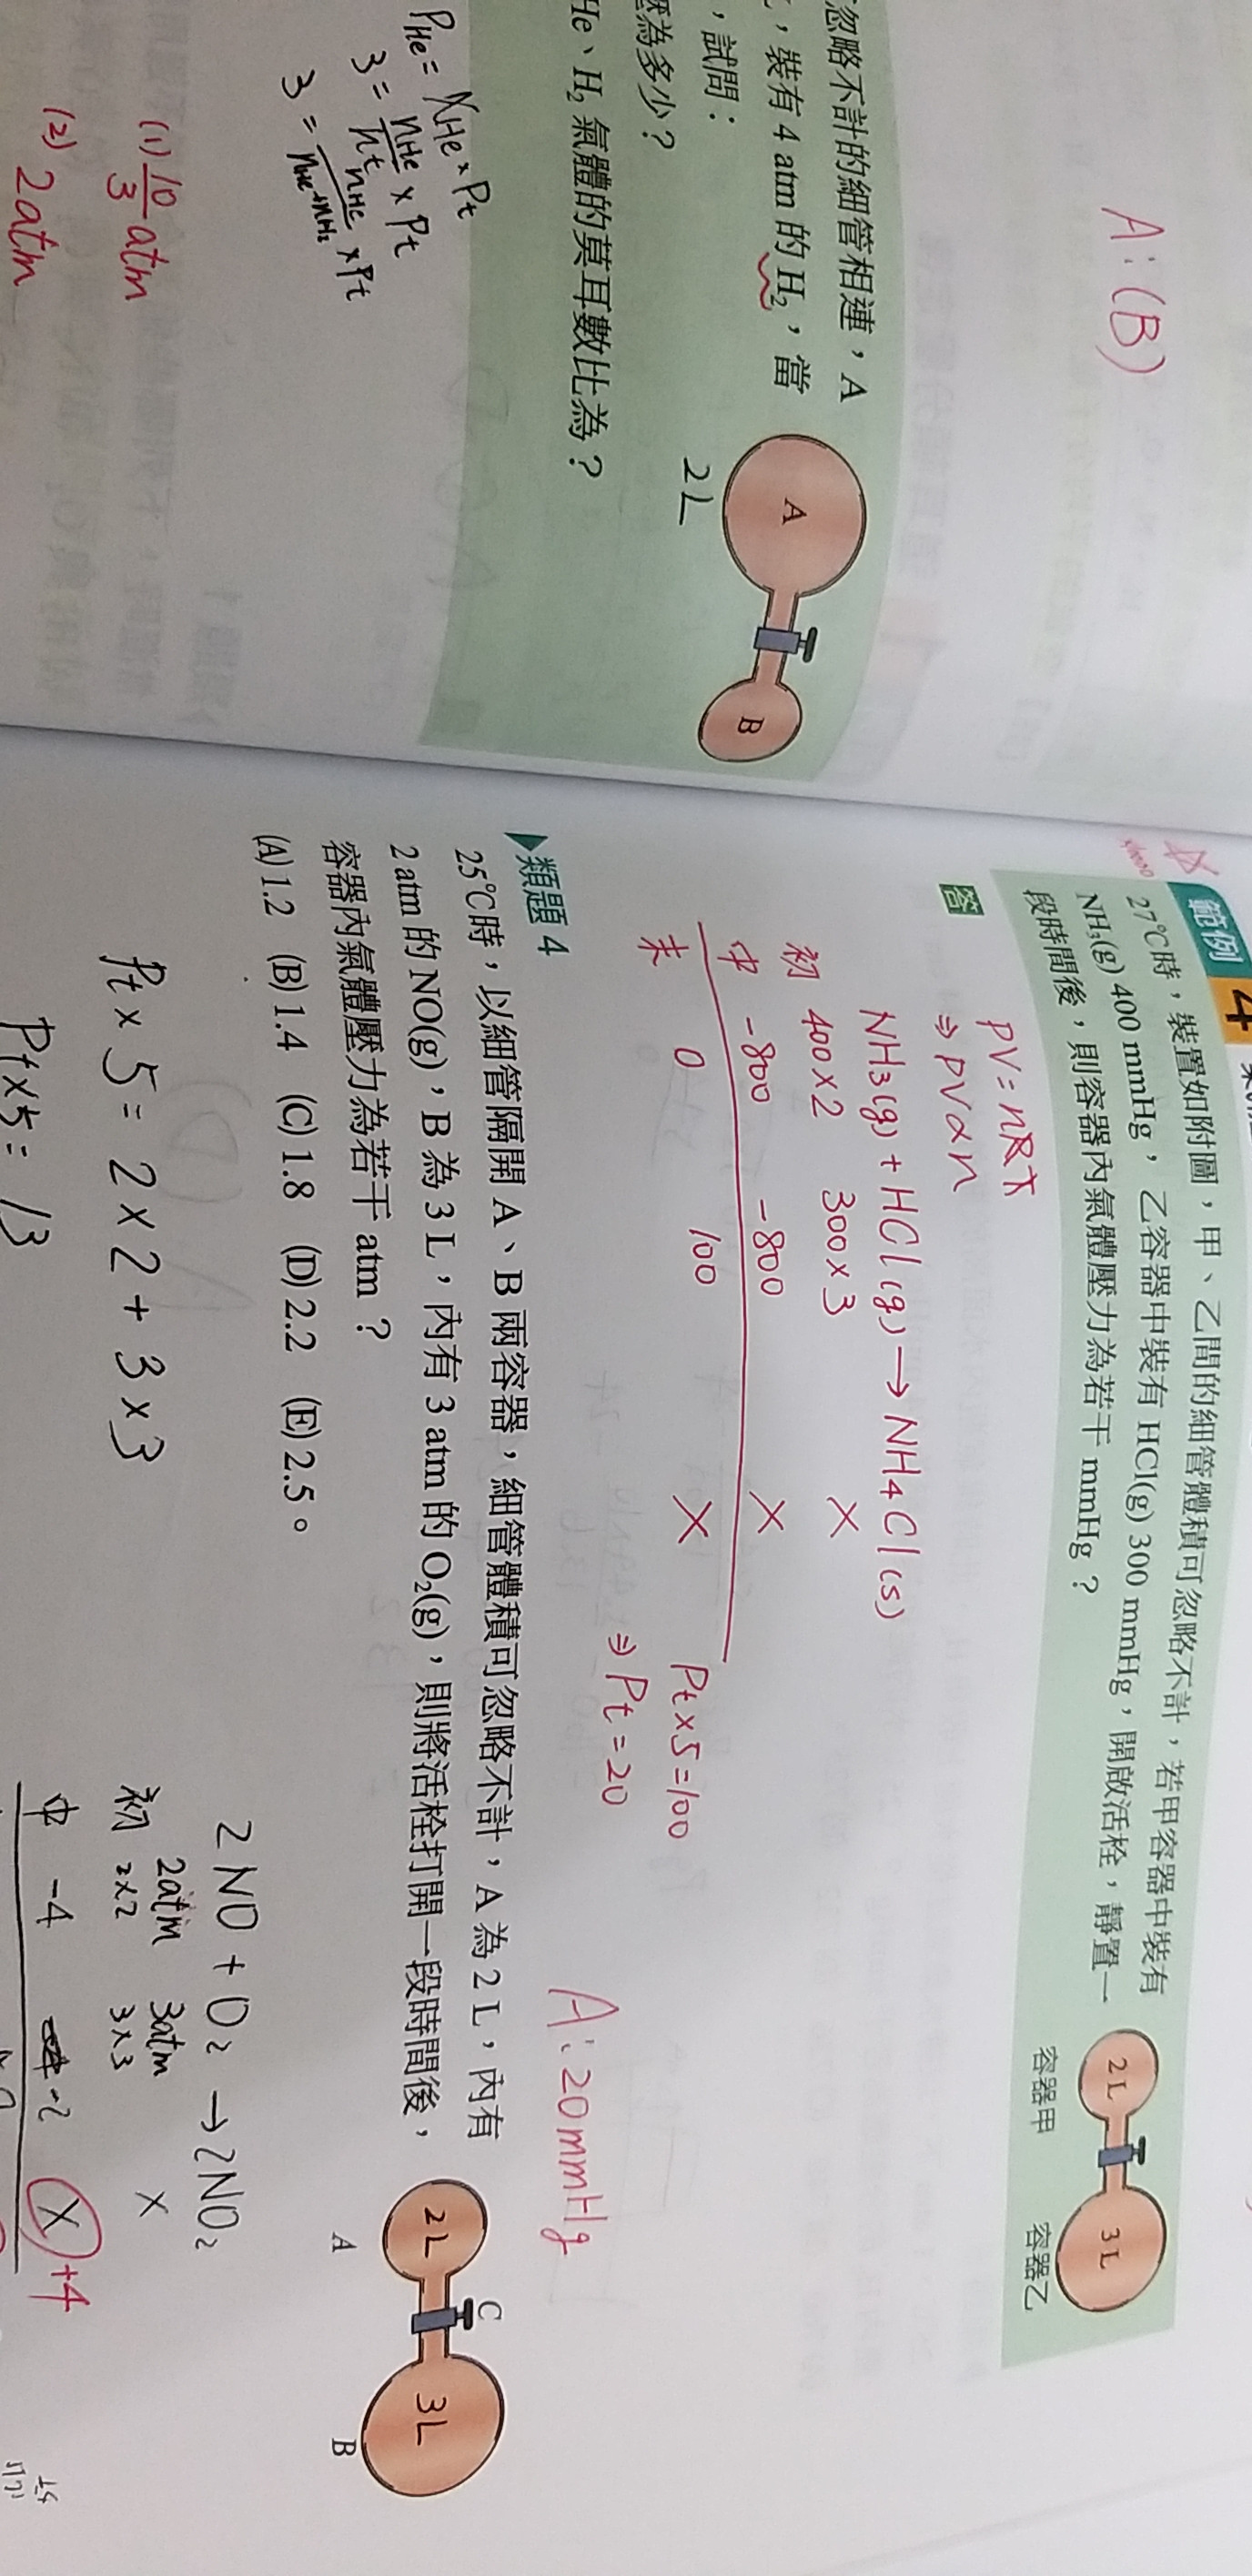 A:(B)
忽略不計的細管相連，A
，裝有 4 atm 的 H₂，當
，試問：
壓為多少？
He、H₂ 氣體的莫耳數比為？
A
B
2L
P_He = X_He × Pt
3 = n_He/n_t × Pt
3 = n_He/(n_He+n_H₂) × Pt
(1) 10/3 atm
(2) 2atm
範例 4
27℃時，裝置如附圖，甲、乙間的細管體積可忽略不計，若甲容器中裝有
NH₃(g) 400 mmHg，乙容器中裝有 HCl(g) 300 mmHg，開啟活栓，靜置一
段時間後，則容器內氣體壓力為若干 mmHg？
2 L
3 L
容器甲
容器乙
答
PV = nRT
⇒ PV ∝ n
NH₃(g) + HCl(g) → NH₄Cl(s)
初 400×2 300×3 ×
中 -800 -800 ×
末 0 100 × Pt×5=100
⇒ Pt = 20
A:20mmHg
類題 4
25℃時，以細管隔開 A、B 兩容器，細管體積可忽略不計，A 為 2 L，內有
2 atm 的 NO(g)，B 為 3 L，內有 3 atm 的 O₂(g)，則將活栓打開一段時間後，
容器內氣體壓力為若干 atm？
(A) 1.2 (B) 1.4 (C) 1.8 (D) 2.2 (E) 2.5。
C
2L
3L
A
B
Pt × 5 = 2 × 2 + 3 × 3
Pt×5 = 13
2 NO + O₂ → 2NO₂
2atm 3atm
初 2×2 3×3 ×
中 -4 -2 × +4